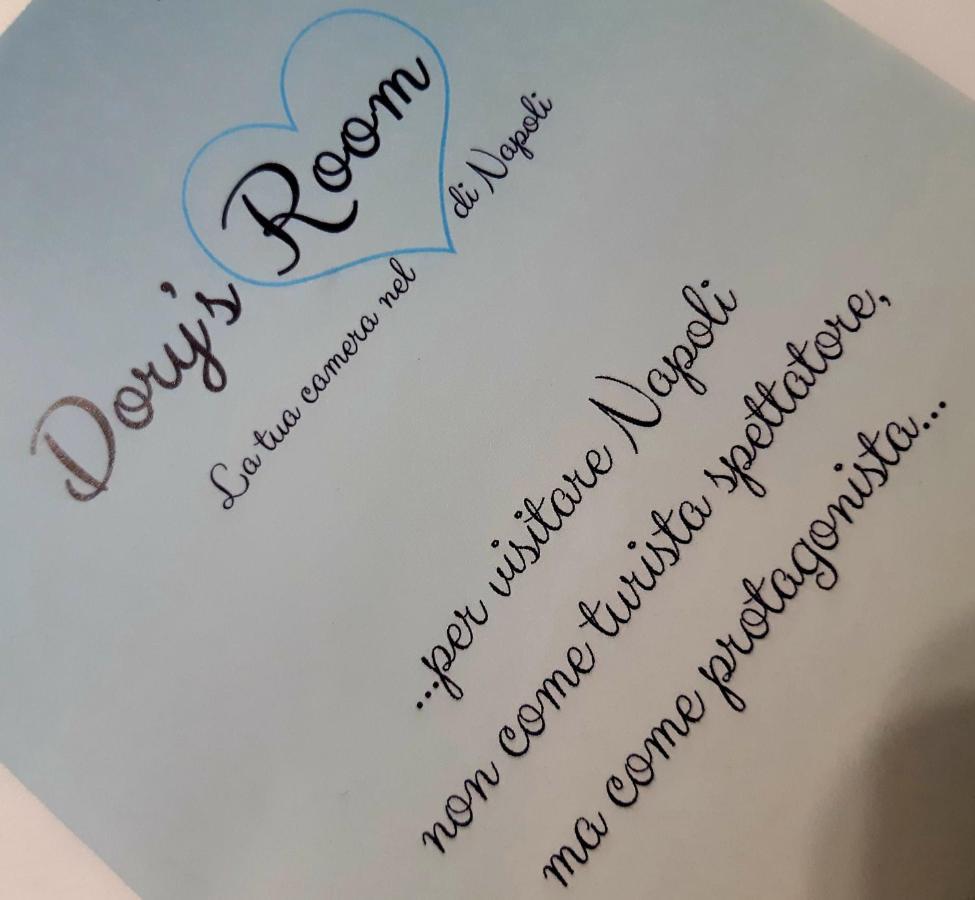 Dory's Room
La tua camera nel di Napoli
...per visitare Napoli
non come turista spettatore,
ma come protagonista...